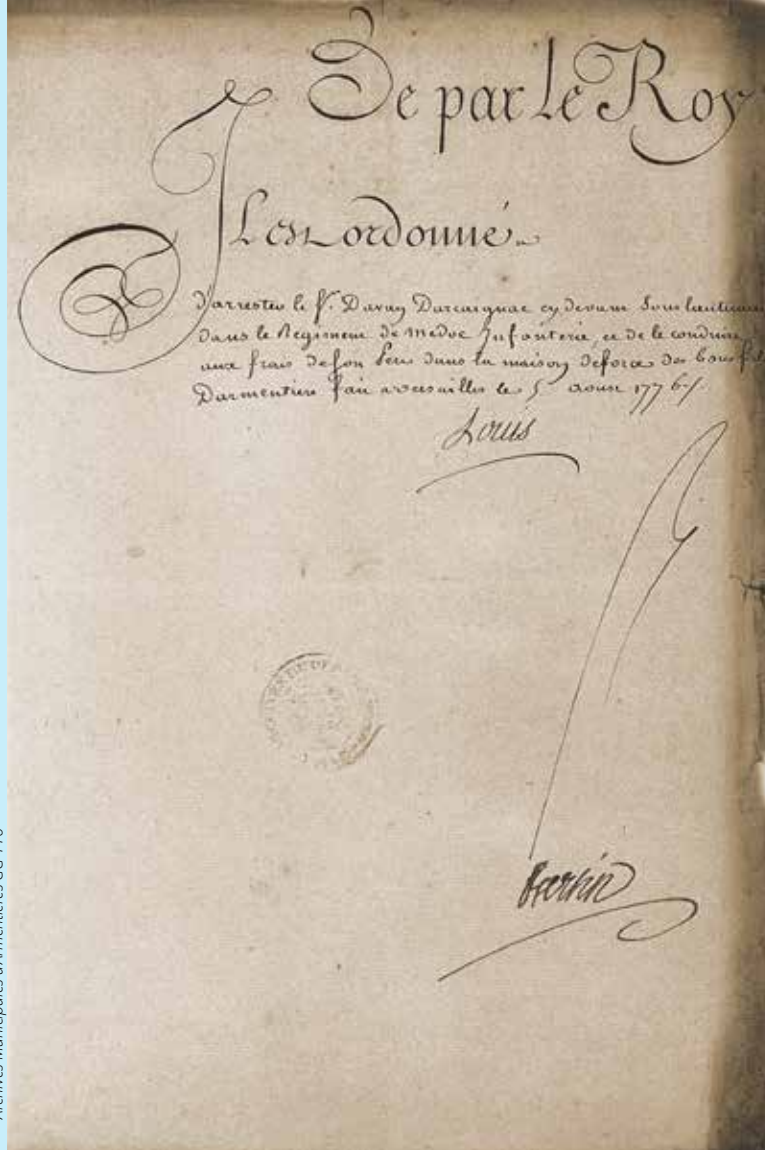 De par le Roy
Il est ordonné
d'arrester le S. Davay Darcaignac cy devant Sous lieutenant
dans le Regiment de medoc Infanterie, et de le conduire
aux frais de son Pere dans la maison de force des bons fils
Darmentieres fait a versailles le 5 aoust 1776
Louis
Archives Municipales d'Armentières GG